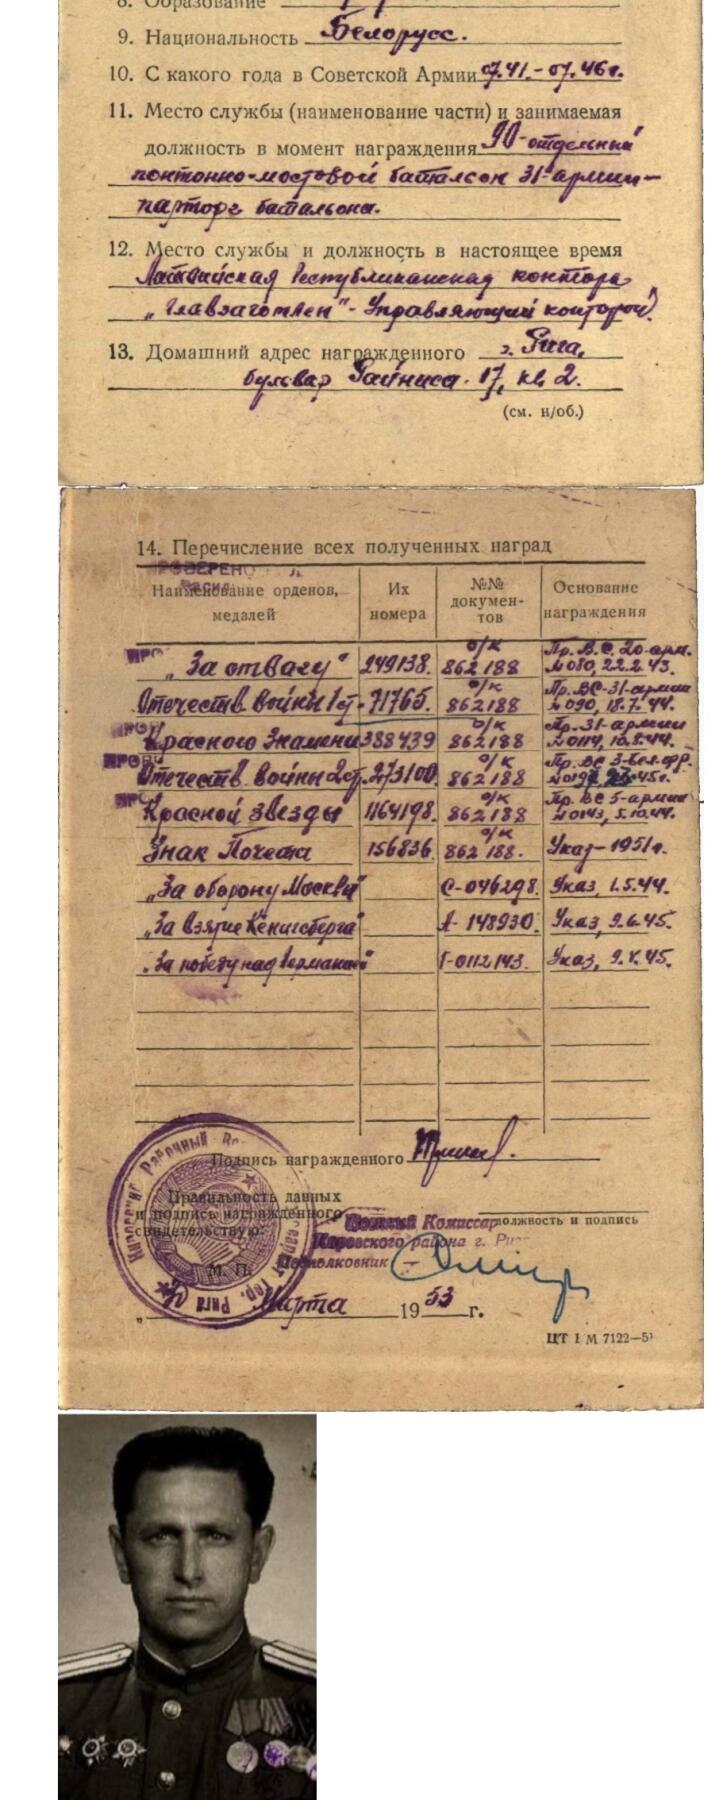 8. Образование
9. Национальность Белорусс.
10. С какого года в Советской Армии 07.41.-07.46г.
11. Место службы (наименование части) и занимаемая
должность в момент награждения 90-отдельный
понтонно-мостовой баталеон 31-армии-
парторг батальона.
12. Место службы и должность в настоящее время
Латвийская Республиканская контора
„Главзаготлен"- Управляющий конторой.
13. Домашний адрес награжденного г. Рига,
бульвар Райниса. 17, кв. 2.
(см. н/об.)
14. Перечисление всех полученных наград
Наименование орденов, медалей Их номера №№ документов Основание награждения
„За отвагу" 249138. о/к 862188 Пр. В.С. 20-арм. №080, 22.2.43.
Отечеств войны 1ст. 71765. о/к 862188 Пр. ВС-31-армии №090, 18.7.44.
Красного Знамени 388439 о/к 862188 Пр. 31-армии №0114, 10.8.44.
Отечеств. войны 2ст. 273100 о/к 862188 Пр. ВС 3-Бел.фр.
Красной Звезды 1164198. о/к 862188 Пр. ВС 5-армии №0143, 5.10.44.
Знак Почета 156836. о/к 862188. Указ-1951г.
„За оборону Москвы" С-046298. Указ, 1.5.44.
„За взятие Кенигсберга" А-148930. Указ, 9.6.45.
„За победу над Германией" Г-0112143. Указ, 9.V.45.
Подпись награжденного
Правильность данных
и подпись награжденного
свидетельствую:
Комиссар должность и подпись
Кировского района г.
Подполковник
М. П.
Марта 1953 г.
ЦТ 1 М 7122—5